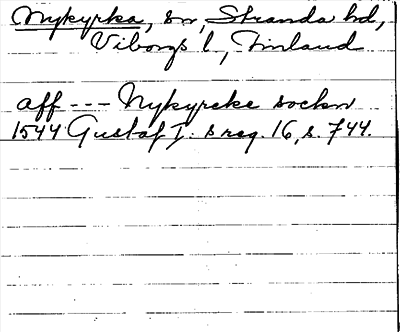 Nykyrka, sn, Stranda hd,
Viborgs l, Finland
aff --- Nykyrcke sockn
1544 Gustaf I:s reg. 16, s. 744.